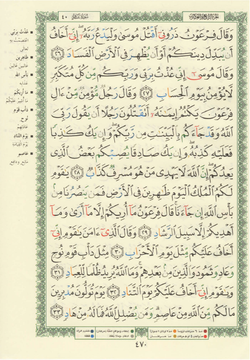 وَقَالَ فِرْعَوْنُ ذَرُونِي أَقْتُلْ مُوسَىٰ وَلْيَدْعُ رَبَّهُ إِنِّي أَخَافُ
أَن يُبَدِّلَ دِينَكُمْ أَوْ أَن يُظْهِرَ فِي الْأَرْضِ الْفَسَادَ ﴿٢٦﴾
وَقَالَ مُوسَىٰ إِنِّي عُذْتُ بِرَبِّي وَرَبِّكُم مِّن كُلِّ مُتَكَبِّرٍ
لَّا يُؤْمِنُ بِيَوْمِ الْحِسَابِ ﴿٢٧﴾ وَقَالَ رَجُلٌ مُّؤْمِنٌ مِّنْ ءَالِ
فِرْعَوْنَ يَكْتُمُ إِيمَٰنَهُ أَتَقْتُلُونَ رَجُلًا أَن يَقُولَ رَبِّيَ
اللَّهُ وَقَدْ جَاءَكُم بِالْبَيِّنَٰتِ مِن رَّبِّكُمْ وَإِن يَكُ كَٰذِبًا
فَعَلَيْهِ كَذِبُهُ وَإِن يَكُ صَادِقًا يُصِبْكُم بَعْضُ الَّذِي
يَعِدُكُمْ إِنَّ اللَّهَ لَا يَهْدِي مَنْ هُوَ مُسْرِفٌ كَذَّابٌ ﴿٢٨﴾ يَٰقَوْمِ
لَكُمُ الْمُلْكُ الْيَوْمَ ظَٰهِرِينَ فِي الْأَرْضِ فَمَن يَنصُرُنَا مِن
بَأْسِ اللَّهِ إِن جَاءَنَا قَالَ فِرْعَوْنُ مَا أُرِيكُمْ إِلَّا مَا أَرَىٰ وَمَا
أَهْدِيكُمْ إِلَّا سَبِيلَ الرَّشَادِ ﴿٢٩﴾ وَقَالَ الَّذِي ءَامَنَ يَٰقَوْمِ إِنِّي
أَخَافُ عَلَيْكُم مِّثْلَ يَوْمِ الْأَحْزَابِ ﴿٣٠﴾ مِثْلَ دَأْبِ قَوْمِ نُوحٍ
وَعَادٍ وَثَمُودَ وَالَّذِينَ مِن بَعْدِهِمْ وَمَا اللَّهُ يُرِيدُ ظُلْمًا لِّلْعِبَادِ ﴿٣١﴾
وَيَٰقَوْمِ إِنِّي أَخَافُ عَلَيْكُمْ يَوْمَ التَّنَادِ ﴿٣٢﴾ يَوْمَ تُوَلُّونَ مُدْبِرِينَ
مَا لَكُم مِّنَ اللَّهِ مِنْ عَاصِمٍ وَمَن يُضْلِلِ اللَّهُ فَمَا لَهُ مِنْ هَادٍ ﴿٣٣﴾
٤٧٠